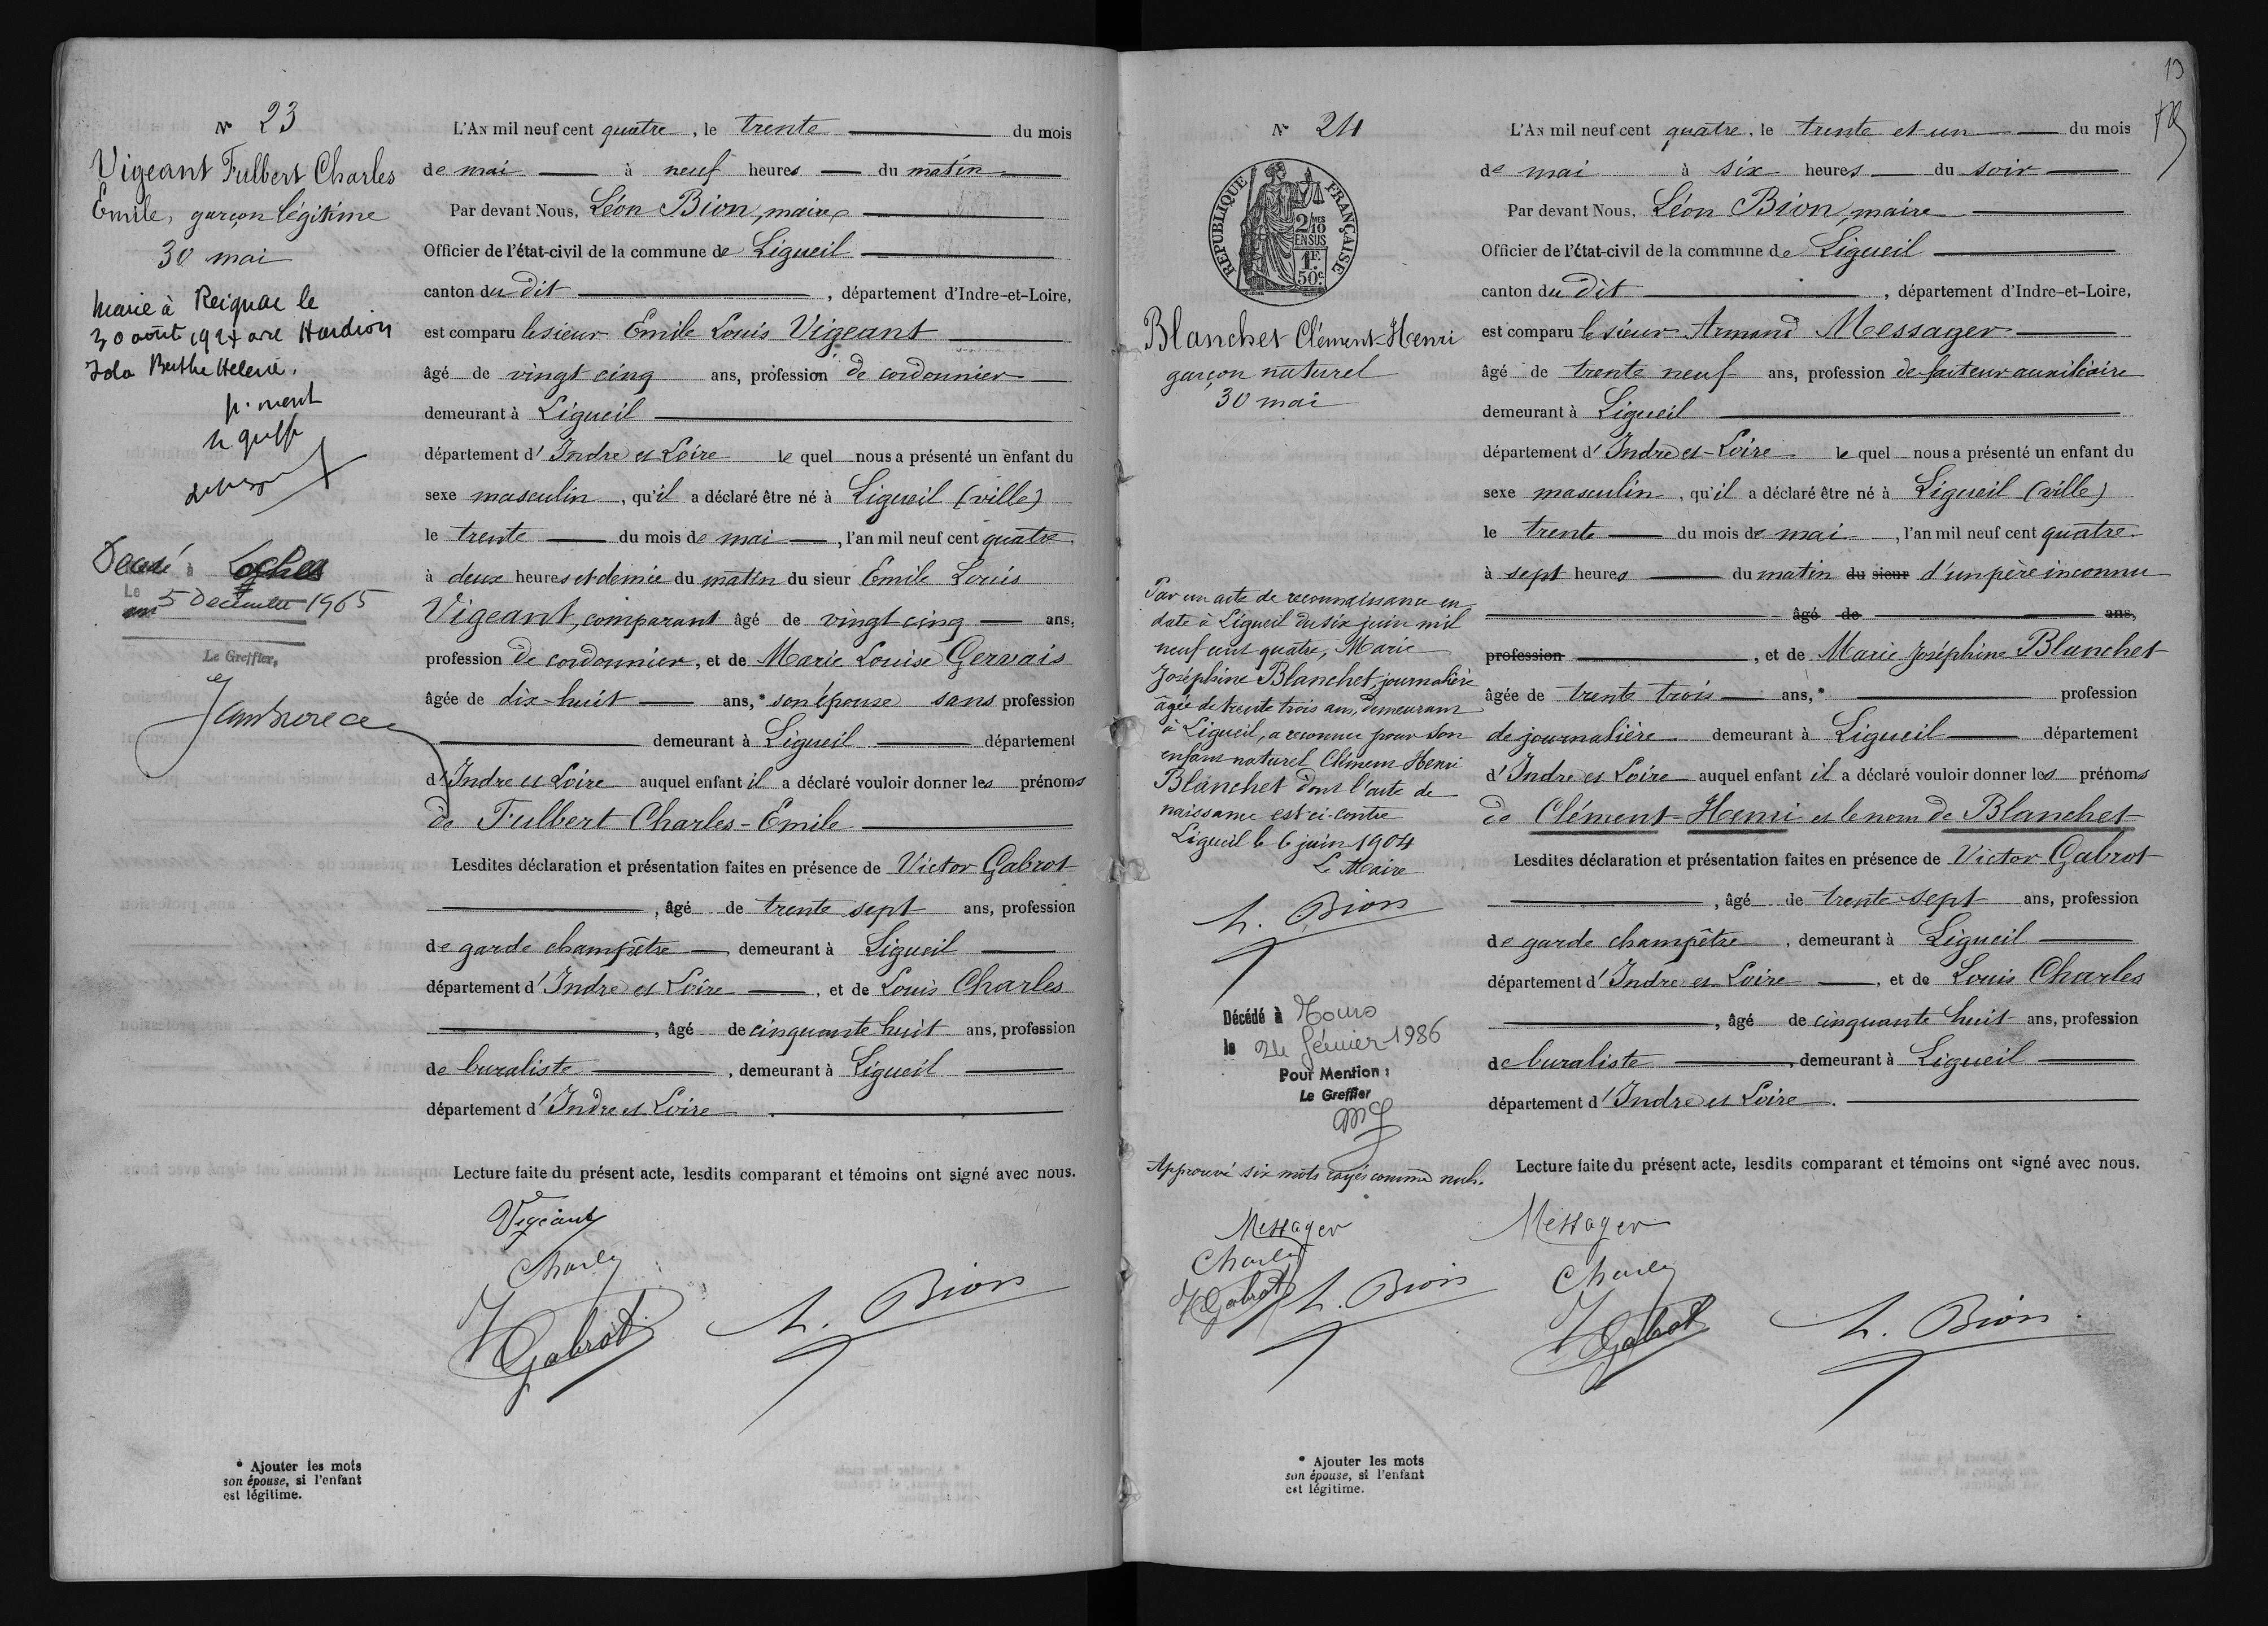 N° 23
Vigeant Fulbert Charles
Emile, garçon légitime
30 mai
Marié à Reignac le
30 août 192 avec Hardion
Berthe Helene.
p. ment
le greffier
Décédé à Loches
Le 5 Decembre 1965
Le Greffier,
L'AN mil neuf cent quatre, le trente du mois
de mai à neuf heures du matin
Par devant Nous, Léon Bion, maire
Officier de l'état-civil de la commune de Ligueil
canton du dit, département d'Indre-et-Loire,
est comparu le sieur Emile Louis Vigeant
âgé de vingt cinq ans, profession de cordonnier
demeurant à Ligueil
département d'Indre et Loire le quel nous a présenté un enfant du
sexe masculin, qu'il a déclaré être né à Ligueil (ville)
le trente du mois de mai, l'an mil neuf cent quatre,
à deux heures et demie du matin du sieur Emile Louis
Vigeant, comparant âgé de vingt cinq ans,
profession de cordonnier, et de Marie Louise Gervais
âgée de dix-huit ans,* son épouse sans profession
demeurant à Ligueil département
d'Indre et Loire auquel enfant il a déclaré vouloir donner les prénoms
de Fulbert Charles-Emile
Lesdites déclaration et présentation faites en présence de Victor Gabrot
, âgé de trente sept ans, profession
de garde champêtre, demeurant à Ligueil
département d'Indre et Loire, et de Louis Charles
, âgé de cinquante huit ans, profession
de buraliste, demeurant à Ligueil
département d'Indre et Loire.
Lecture faite du présent acte, lesdits comparant et témoins ont signé avec nous.
Vigeant
Charles
V Gabrot
L. Bion
* Ajouter les mots
son épouse, si l'enfant
est légitime.
13
N° 24
RÉPUBLIQUE FRANÇAISE
2/10MES
EN SUS
1F.
50c.
Blanchet Clément-Henri
garçon naturel
30 mai
Par un acte de reconnaissance en
date à Ligueil du six juin mil
neuf cent quatre, Marie
Joséphine Blanchet, journalière
âgée de trente trois ans, demeurant
à Ligueil, a reconnu pour son
enfant naturel Clément Henri
Blanchet dont l'acte de
naissance est ci-contre
Ligueil le 6 juin 1904
Le Maire
L. Bion
Décédé à Tours
le 24 février 1986
Pour Mention :
Le Greffier
Approuvé six mots rayés comme nuls.
Messager
Charles
V Gabrot L. Bion
* Ajouter les mots
son épouse, si l'enfant
est légitime.
L'AN mil neuf cent quatre, le trente et un du mois
de mai à six heures du soir
Par devant Nous, Léon Bion, maire
Officier de l'état-civil de la commune de Ligueil
canton du dit, département d'Indre-et-Loire,
est comparu le sieur Armand Messager
âgé de trente neuf ans, profession de facteur auxiliaire
demeurant à Ligueil
département d'Indre et-Loire le quel nous a présenté un enfant du
sexe masculin, qu'il a déclaré être né à Ligueil (ville)
le trente du mois de mai, l'an mil neuf cent quatre
à sept heures du matin du sieur d'un père inconnu
âgé de ans,
profession, et de Marie Joséphine Blanchet
âgée de trente trois ans,* profession
de journalière demeurant à Ligueil département
d'Indre et Loire auquel enfant il a déclaré vouloir donner les prénoms
de Clément-Henri et le nom de Blanchet
Lesdites déclaration et présentation faites en présence de Victor Gabrot
, âgé de trente-sept ans, profession
de garde champêtre, demeurant à Ligueil
département d'Indre et Loire, et de Louis Charles
, âgé de cinquante huit ans, profession
de buraliste, demeurant à Ligueil
département d'Indre et Loire.
Lecture faite du présent acte, lesdits comparant et témoins ont signé avec nous.
Messager
Charles
V Gabrot
L. Bion